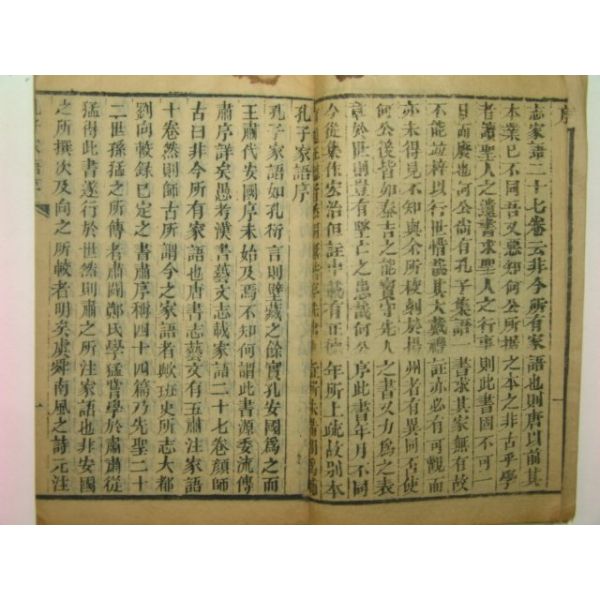 序
志家語二十七卷云非今所有家語也則唐以前其
本業已不同吾又惡知何公所據之本之非古乎學
者讀聖人之遺書求聖人之行事則此書固不可一
日而廢也何公尚有孔子集語一書求其家無有故
不能並梓以行世惜哉其大戴禮註亦必有可觀而
亦未得見不知與余所校刻於揚州者有異同否使
何公後皆如泰吉之能寶守先人之書又力爲之表
章於世則豈有墜亡之患哉何公序此書年月不同
今後集作宏治但註中載有正德年所上疏故別本
孔子家語序
孔子家語如孔衍言則壁藏之餘實孔安國爲之而
王肅代安國序未始及焉不知何謂此書源委流傳
肅序詳矣愚考漢書藝文志載家語二十七卷顏師
古曰非今所有家語也唐書志藝文有王肅注家語
十卷然則師古所謂今之家語者歟班史所志大都
劉向較錄已定之書肅序稱四十四篇乃先聖二十
二世孫猛之所傳者肅闢鄭氏學猛嘗學於肅肅從
猛得此書遂行於世然則肅之所注家語也非安國
之所撰次及向之所較者明矣虞舜南風之詩元注